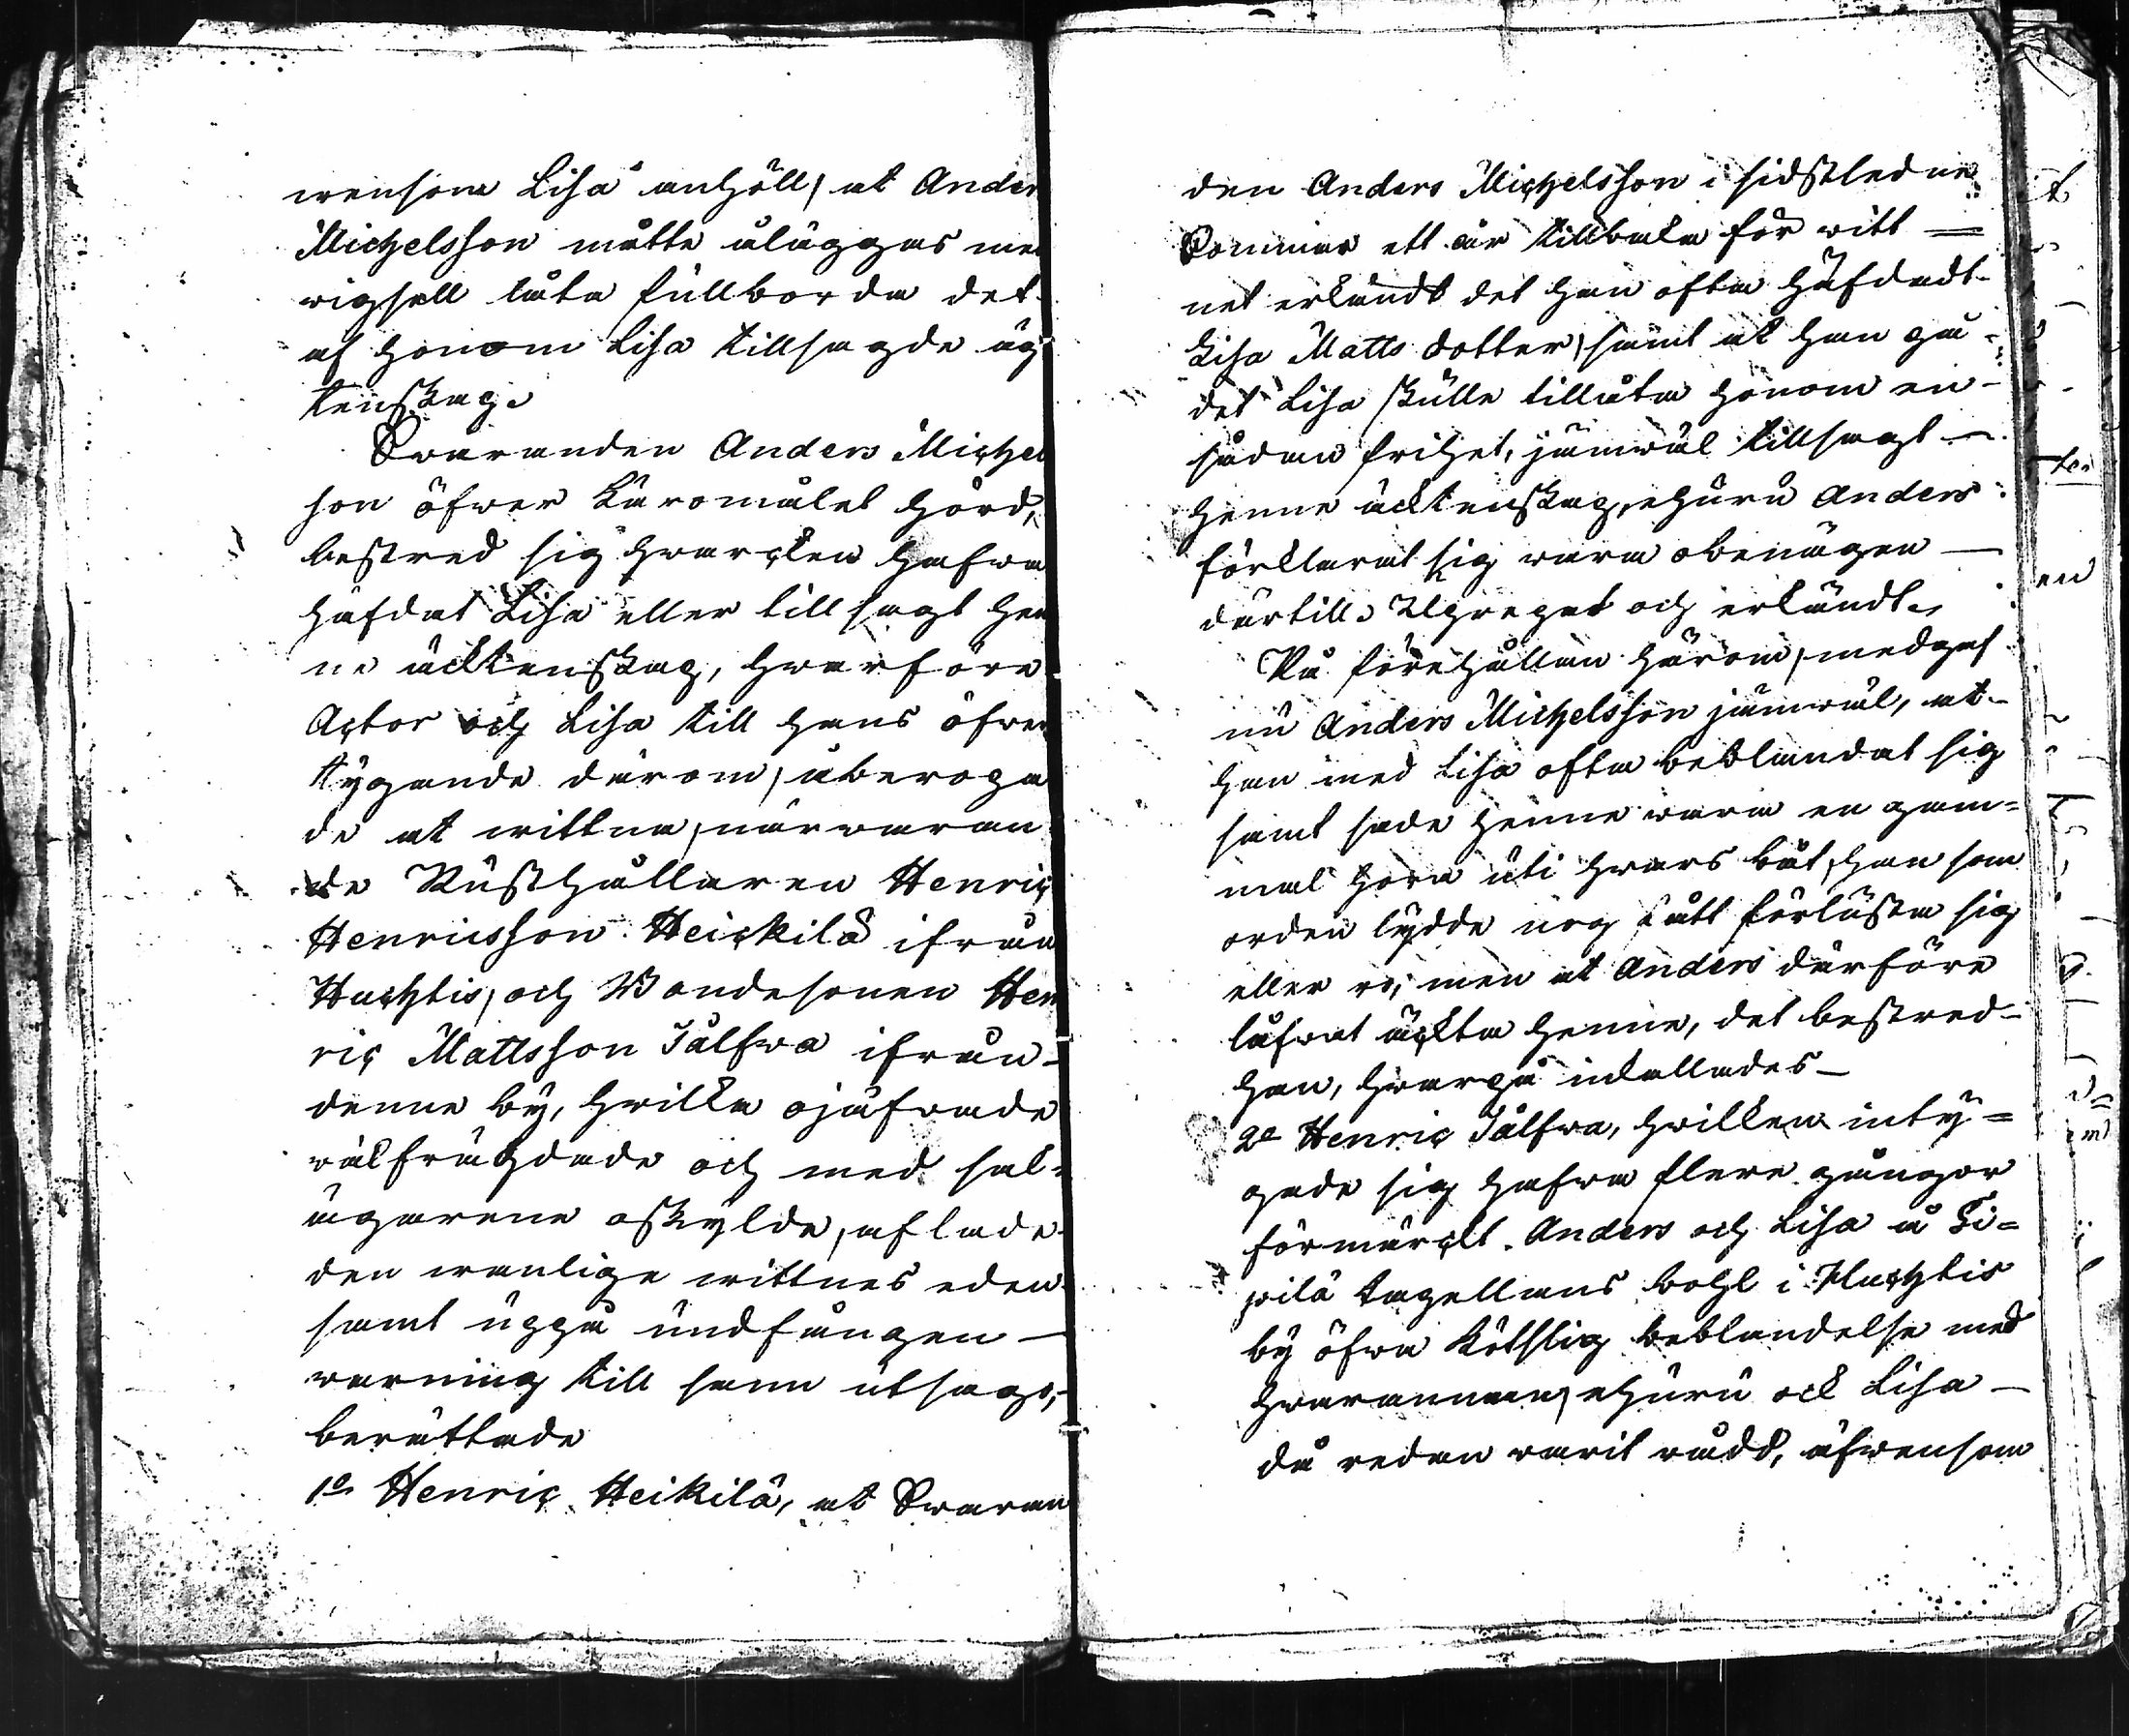 wensom Lisa anhöll, at Ander
Michelsson måtte åläggas me
wigsell låta fullborda det
af honom Lisa tillsagde äg
tenskap.
Swaranden Anders Michel
son öfwer Käromålet hörd,
bestred sig hwarcken hafwa
häfdat Lisa eller tillsagt hen
ne äcktenskap, hwarföre
Actor och Lisa till hans öfwer
tygande därom, åberopa
de at wittna, närwaran
de Rusthållaren Henric
Henricsson Heickilä ifrån
Huchtis, och Bondesonen Hen
ric Mattsson Jälfwa ifrån
denne by, hwilka ojäfwade
wälfrägdade och med sak-
ägarene oskylde, aflade
den wanlige wittnes eden
samt uppå undfången —
warning till sann utsago,
berättade
1o Henric Heikilä, at Swaran
den Anders Michelsson i sidstledne
Sommar ett år tillbaka för witt =
net erkändt det han ofta häfdadt
Lisa Matts dotter, samt at han på-
det Lisa skulle tillåta honom en-
sådan frihet, jämwäl tillsagt —
henne äcktenskap, ehuru Anders
förklarat sig wara obenägen —
därtill. Upprepat och erkändt.
På förehållan härom, medgaf
nu Anders Michelsson jämwäl, at-
han med Lisa ofta beblandat sig
samt sade henne wara en gam=
mal hora uti hwars båt, han som
orden lydde nog fått förlusta sig
eller ro, men at Anders därföre
låfwat äckta henne, det bestred-
han, hwarpå inkallades —
2o Henric Jälfwa, hwilken inty=
gade sig hafwa flere gångor
förmärckt Anders och Lisa å Si=
pilä Kapellans bohl i Huchtis
by öfwa Kötslig beblandelse med
hwarannan, ehuru ock Lisa —
då redan warit rådd, äfwensom